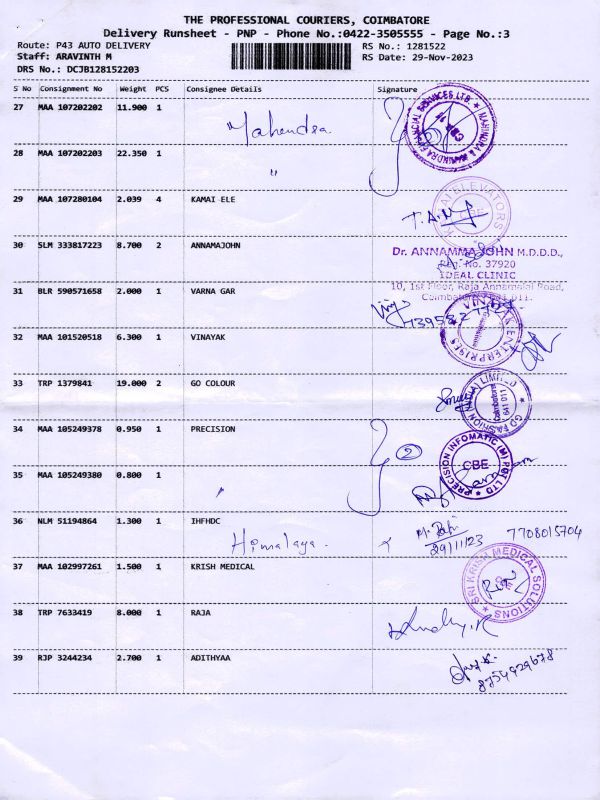 THE PROFESSIONAL COURIERS, COIMBATORE
Delivery Runsheet - PNP - Phone No.:0422-3505555 - Page No.:3
Route: P43 AUTO DELIVERY RS No.: 1281522
Staff: ARAVINTH M RS Date: 29-Nov-2023
DRS No.: DCJB128152203
S No Consignment No Weight PCS Consignee Details Signature
27 MAA 107202202 11.900 1 Mahendra
MAHINDRA & MAHINDRA FINANCIAL SERVICES LTD.
28 MAA 107202203 22.350 1 "
29 MAA 107280104 2.039 4 KAMAI ELE
30 SLM 333817223 8.700 2 ANNAMAJOHN
Dr. ANNAMMA JOHN M.D.D.D.,
Reg. No. 37920
IDEAL CLINIC
10, 1st Floor, Raja Annamalai Road,
31 BLR 590571658 2.000 1 VARNA GAR
32 MAA 101520518 6.300 1 VINAYAK
VINAYAKA ENTERPRISES
33 TRP 1379841 19.000 2 GO COLOUR
GO FASHION (INDIA) LIMITED
Coimbatore
641 011
34 MAA 105249378 0.950 1 PRECISION
2
PRECISION INFOMATIC (M) PVT LTD
CBE
35 MAA 105249380 0.800 1 "
36 NLM 51194864 1.300 1 IHFHDC
Himalaya.
29/11/23 7708015704
37 MAA 102997261 1.500 1 KRISH MEDICAL
SRI KRISH MEDICAL SOLUTIONS
38 TRP 7633419 8.000 1 RAJA
39 RJP 3244234 2.700 1 ADITHYAA
8754929678